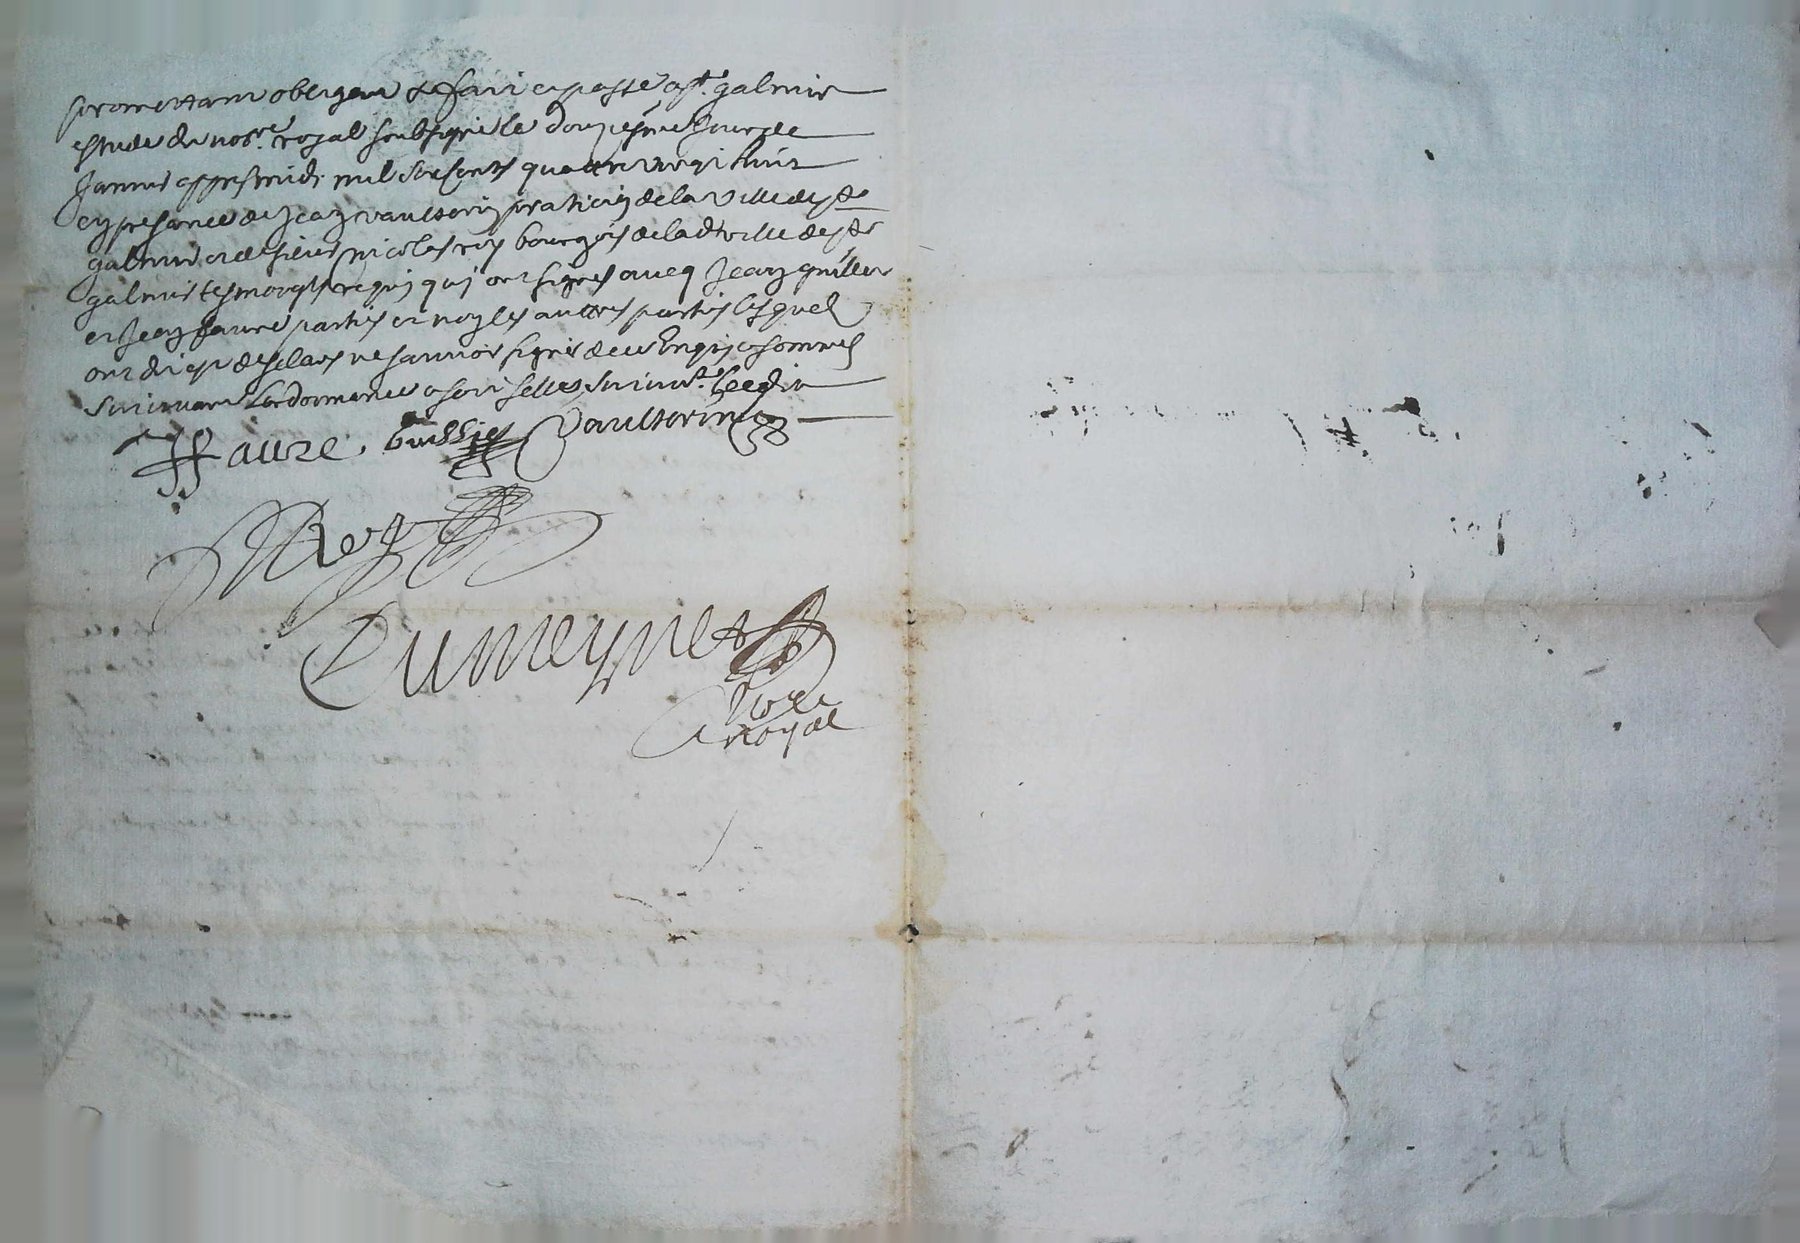 promettant obligeant &c faict et passé a st galmier
estude du nore royal soubsigné le douziesme jour de
janvier appres midi mil six cents quattre vingt huit
en presance de Jean vaultorin praticien de la ville de st
galmier et de sieur nicolas roy bourgois de la dte ville de st
galmier tesmoingts requis quj ont signés avecq Jean
et Jean faure parties et non les auttres parties lesquels
ont dit et desclaré ne sauvoir signer de ce enquis et sommés
suivant l'ordonnance
JFaure Vaultorin
NRoy
Dumeynet
nore
royal